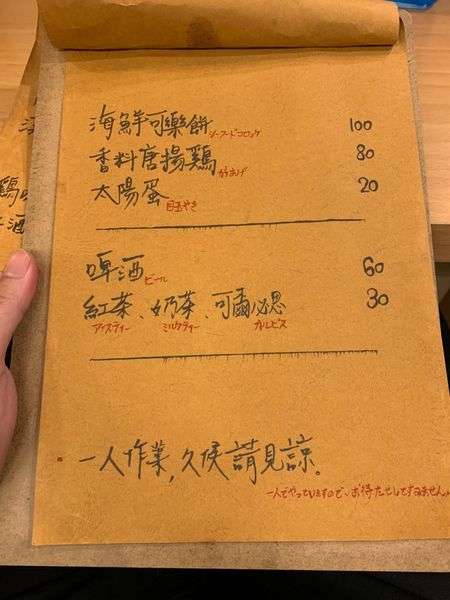 海鮮可樂餅 シーフードコロッケ 100
香料唐揚鶏 からあげ 80
太陽蛋 目玉やき 20
啤酒 ビール 60
紅茶、奶茶、可爾必思 30
アイスティー ミルクティー カルピス
一人作業,久候請見諒.
一人でやっていますので、お待たせしてすみません。